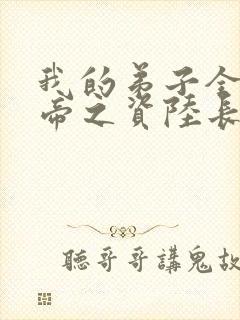 我的弟子全
帝之資陸長
聽哥哥講鬼故